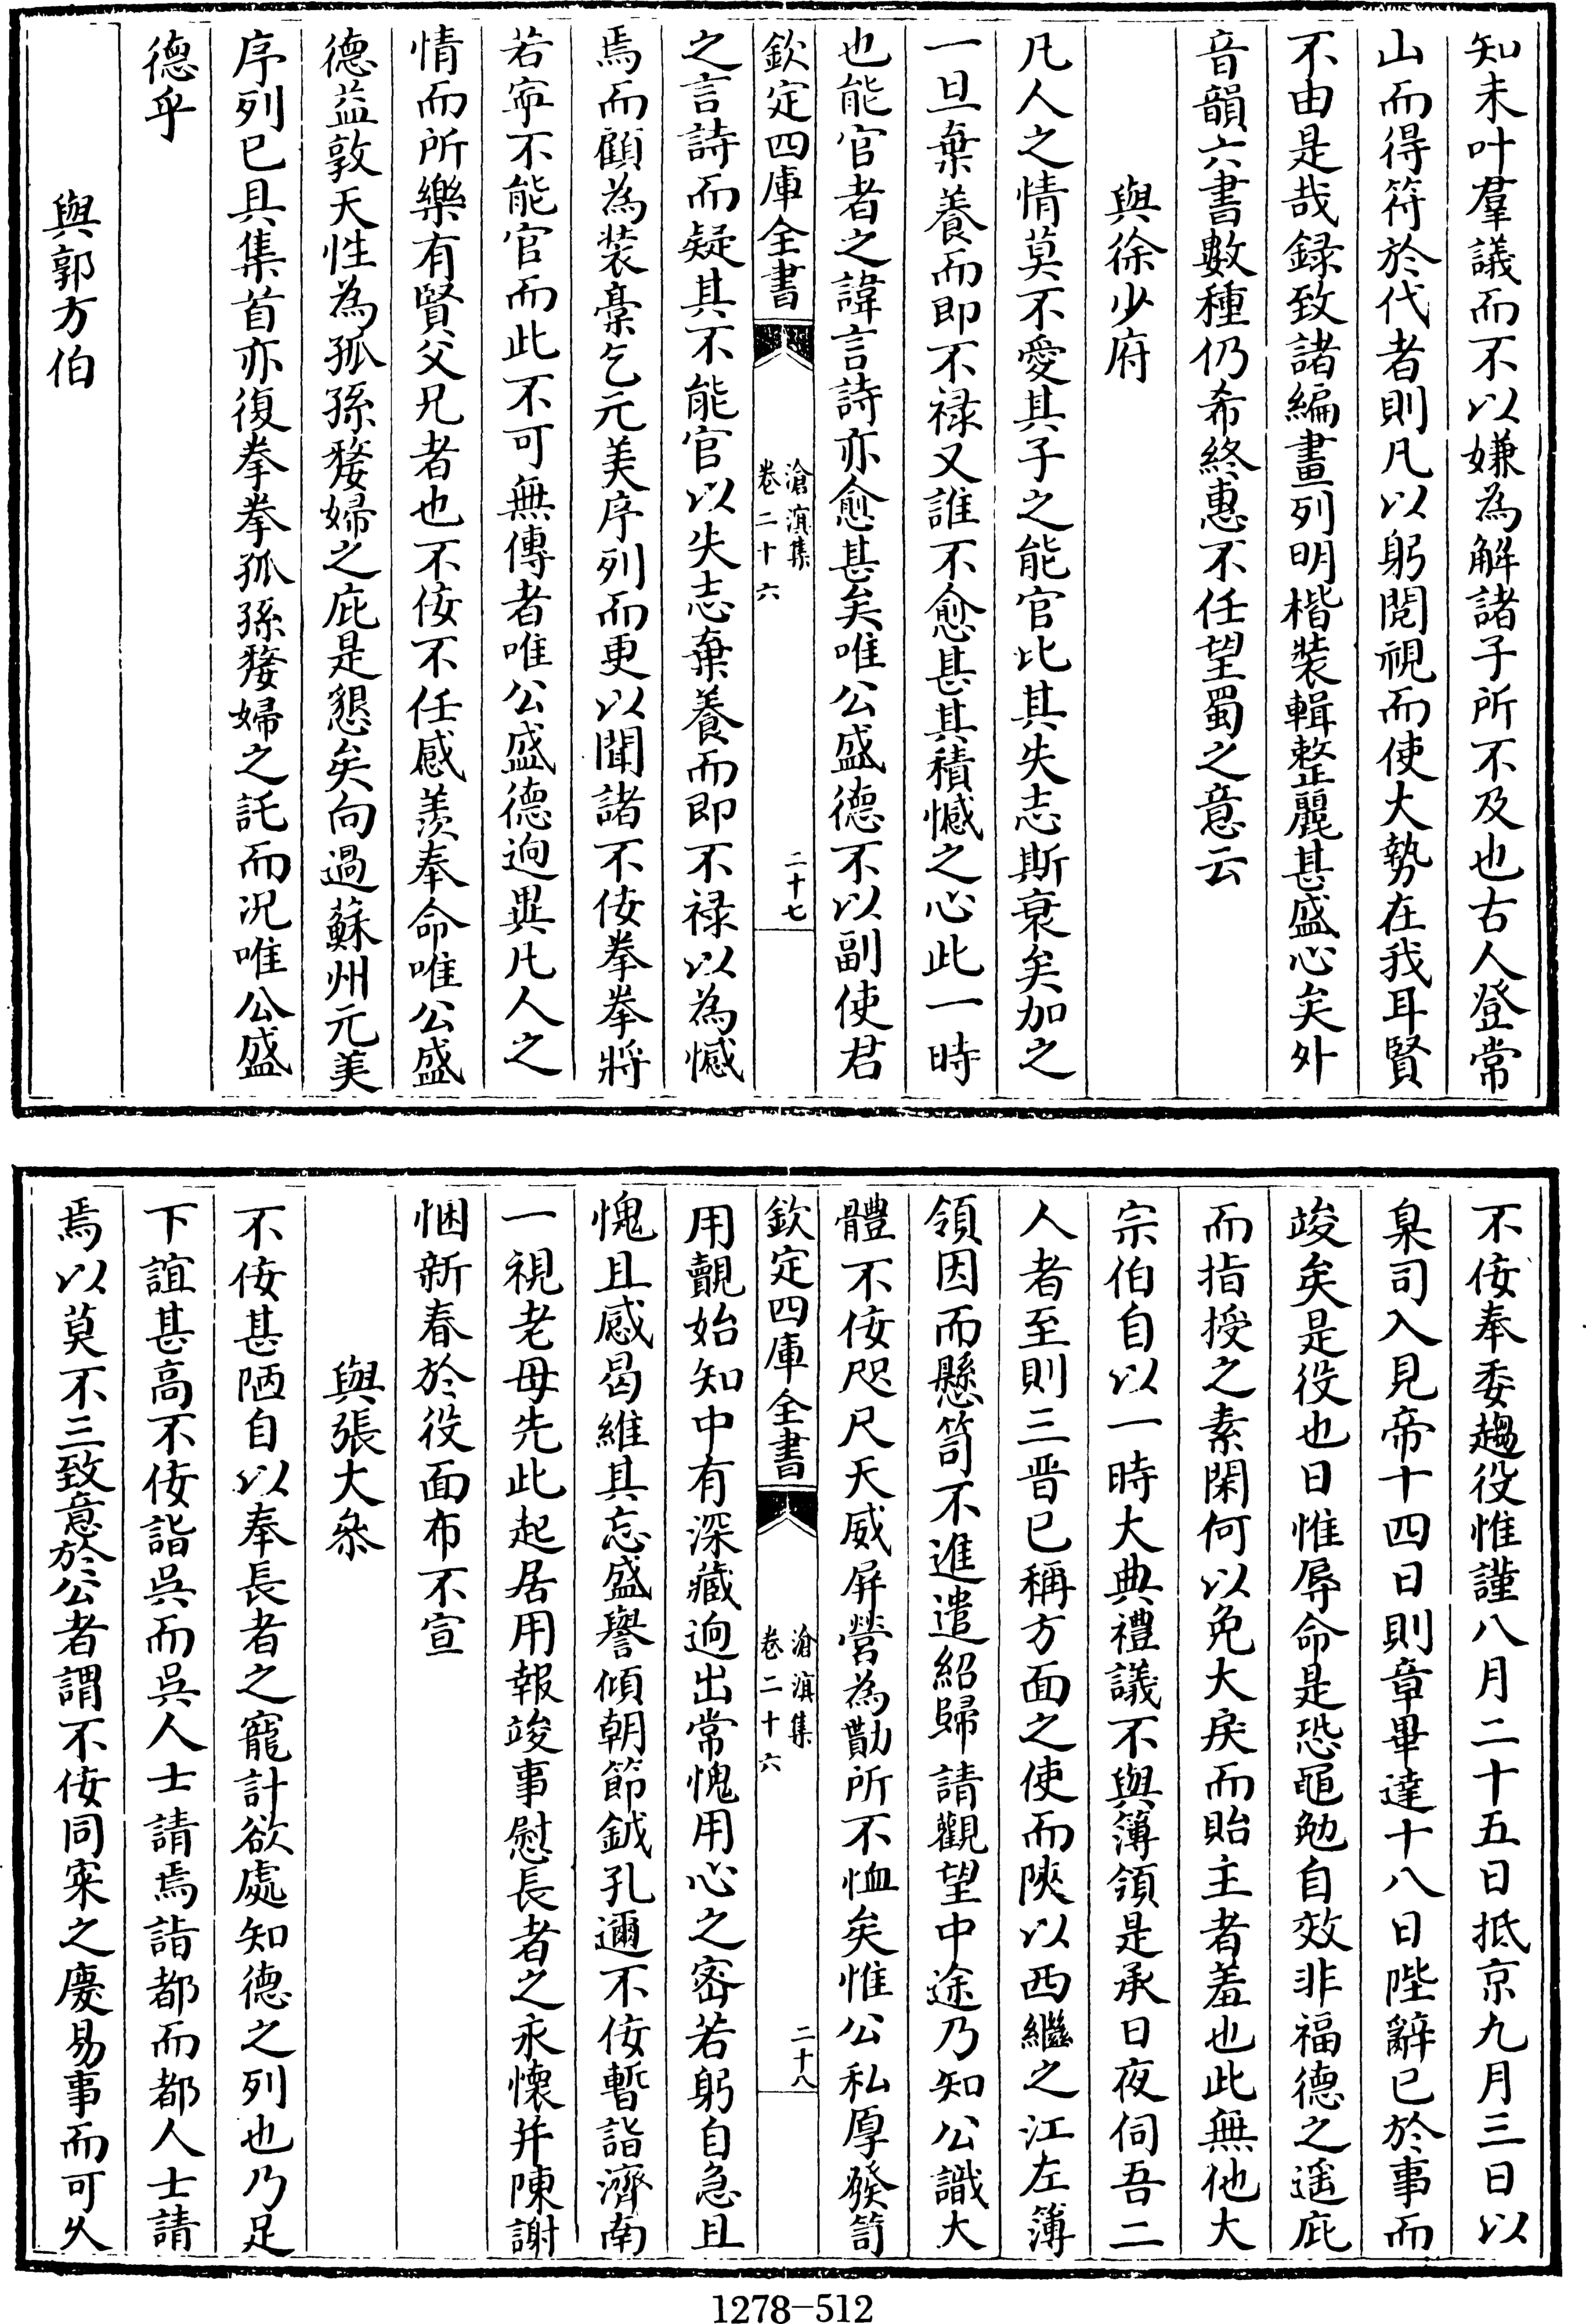 知未叶羣議而不以嫌為解諸子所不及也古人登常
山而得符於代者則凡以躬閱視而使大勢在我耳賢
不由是哉録致諸編畫列明楷裝輯整麗甚盛心矣外
音韻六書數種仍希終惠不任望蜀之意云
與徐少府
凡人之情莫不愛其子之能官比其失志斯衰矣加之
一旦棄養而即不禄又誰不愈甚其積憾之心此一時
也能官者之諱言詩亦愈甚矣唯公盛德不以副使君
欽定四庫全書
滄溟集
卷二十六
二十七
之言詩而疑其不能官以失志棄養而即不禄以為憾
焉而顧為裝橐乞元美序列而更以聞諸不佞拳拳將
若寕不能官而此不可無傳者唯公盛德迥異凡人之
情而所樂有賢父兄者也不佞不任感羨奉命唯公盛
德益敦天性為孤孫嫠婦之庇是懇矣向過蘇州元美
序列已具集首亦復拳拳孤孫嫠婦之託而况唯公盛
德乎
與郭方伯
不佞奉委趨役惟謹八月二十五日抵京九月三日以
臬司入見帝十四日則章畢達十八日陛辭已於事而
竣矣是役也日惟辱命是恐黽勉自效非福德之遥庇
而指授之素閑何以免大戾而貽主者羞也此無他大
宗伯自以一時大典禮議不與簿領是承日夜伺吾二
人者至則三晋已稱方面之使而陜以西繼之江左簿
領因而懸笥不進遣紹歸請觀望中途乃知公識大
體不佞咫尺天威屏營為勩所不恤矣惟公私厚發笥
欽定四庫全書
滄溟集
卷二十六
二十八
用覿始知中有深藏迥出常愧用心之密若躬自急且
愧且感曷維其忘盛譽傾朝節鉞孔邇不佞暫詣濟南
一視老母先此起居用報竣事慰長者之永懷并陳謝
悃新春於役面布不宣
與張大叅
不佞甚陋自以奉長者之寵計欲處知德之列也乃足
下誼甚高不佞詣吳而吳人士請焉詣都而都人士請
焉以莫不三致意於公者謂不佞同寀之慶易事而可久
1278-512